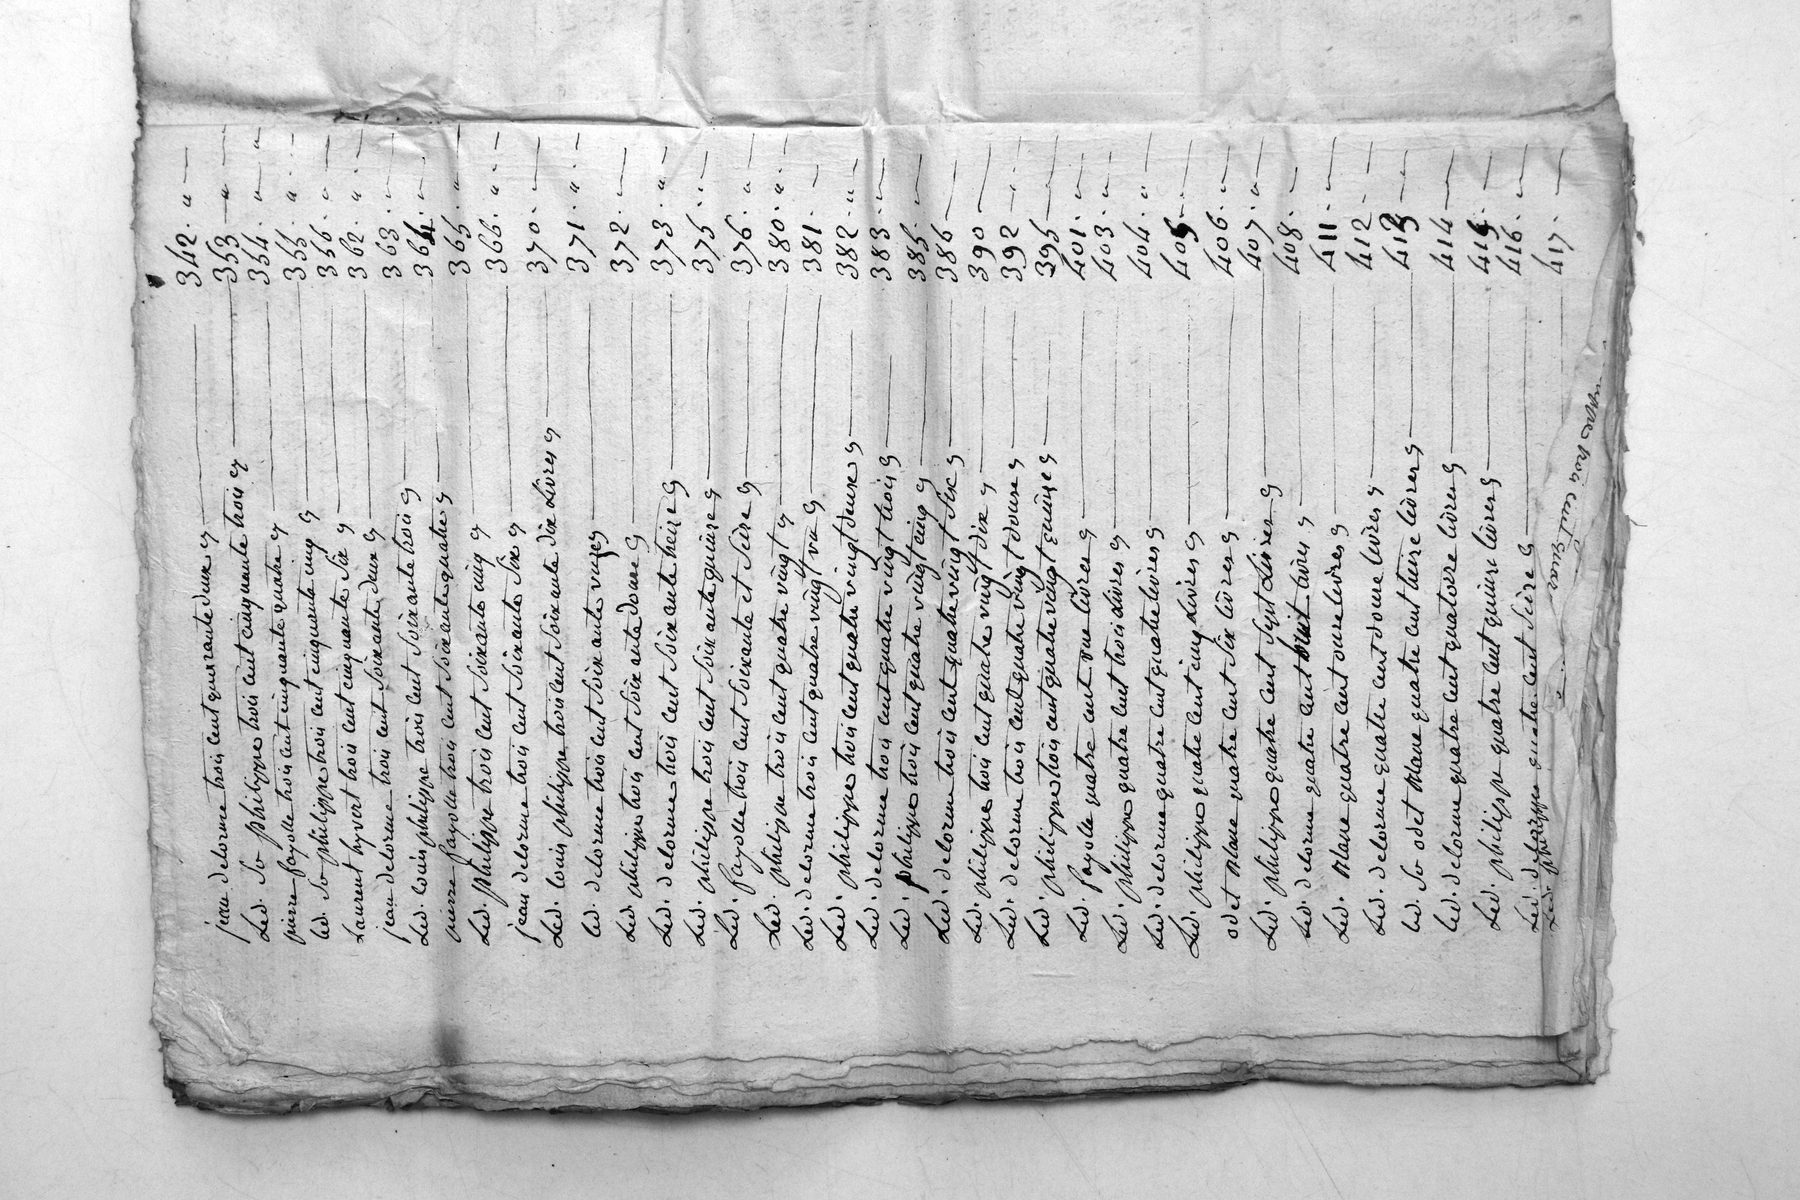 jean delorme trois cent quarante deux 342. " —
Led. Sr philippe trois cent cinquante trois 353 — " —
pierre fayolle trois cent cinquante quatre 354. — "
led. Sr philippe trois cent cinquante cinq 355. " . —
Laurent hyvert trois cent cinquante Six 356. " —
jean delorme trois cent Soixante deux 362. " . —
Led. louis philippe trois cent Soixante trois 363. —
pierre fayolle trois cent Soixante quatre 364. —
Led. philippe trois cent Soixante cinq 365. "
jean delorme trois cent Soixante Six 366. " . —
Led. louis philippe trois cent Soixante dix Livres 370. —
led. delorme trois cent Soixante unze 371. " . —
Led. philippe trois cent Soixante douse 372. —
Led. delorme trois cent Soixante treise 373. " —
Led. philippe trois cent Soixante quinse 375. " —
Led. fayolle trois cent Soixante et Seise 376. " —
Led. philippe trois cent quatre vingt 380. " . —
Led. delorme trois cent quatre vingt un 381. —
Led. philippe trois cent quatre vingt deux 382. " —
Led. delorme trois cent quatre vingt trois 383. " —
Led. philippe trois cent quatre vingt cinq 385. —
Led. delorme trois cent quatre vingt Six 386 —
Led. philippe trois cent quatre vingt dix 390 —
Led. delorme trois cent quatre vingt douse 392 —
Led. philippe trois cent quatre vingt quinse 395 —
Led. fayolle quatre cent une livres 401. —
Led. philippe quatre cent trois Livres 403. " —
Led. delorme quatre cent quatre livres 404. " —
Led. philippe quatre cent cinq Livres 405 —
odet blanc quatre cent Six livres 406. —
Led. philippe quatre cent Sept Livres 407. " —
Led. delorme quatre cent huit livres 408. —
Led. blanc quatre cent onze livres 411 —
Led. delorme quatre cent douse livres 412 —
led. Sr odet blanc quatre cent treise livres 413 —
led. delorme quatre cent quatorse livres 414 —
Led. philippe quatre cent quinse livres 415. —
Led. delorme quatre cent Seise 416. —
Led. philippe 417. —
trois cent